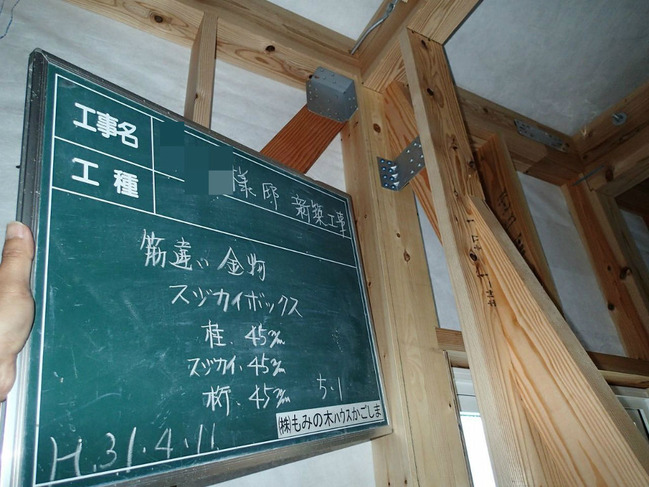 工事名
様邸 新築工事
工種
筋違い金物
スジカイボックス
柱.45㎜
スヂカイ.45㎜
桁.45㎜
ち.1
㈱もみの木ハウスかごしま
H.31.4.11